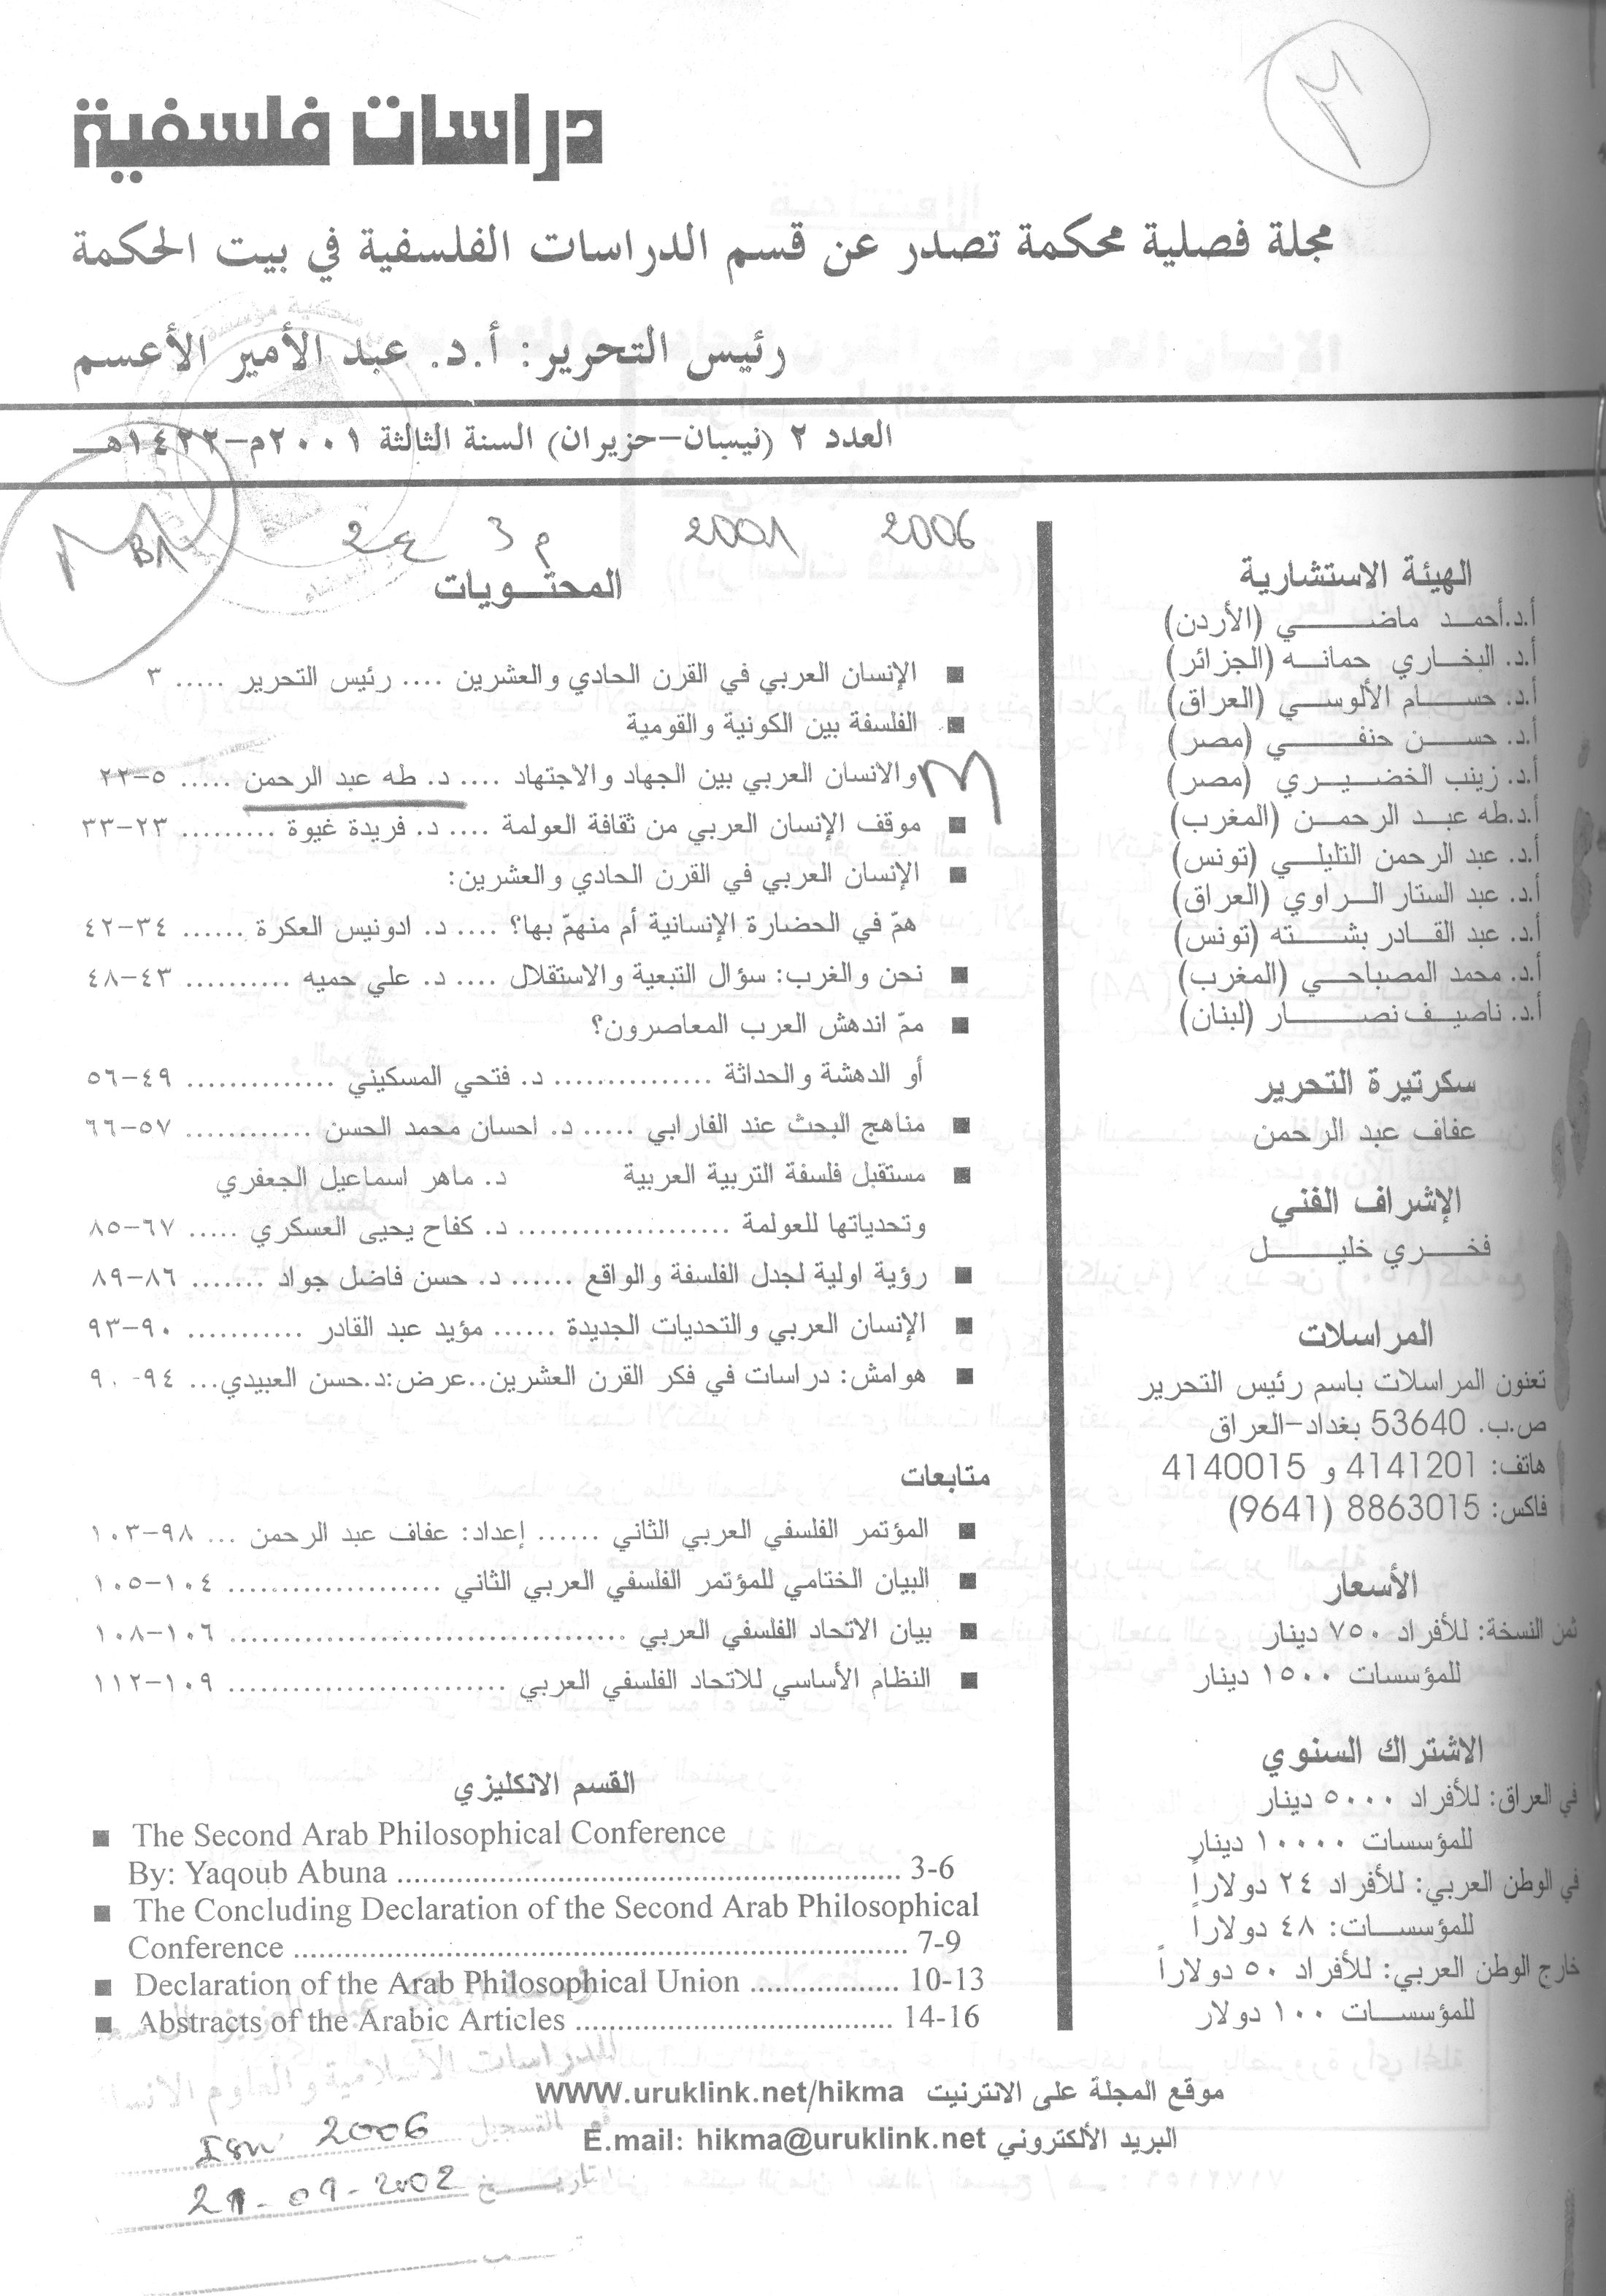 دراسات فلسفية
مجلة فصلية محكمة تصدر عن قسم الدراسات الفلسفية في بيت الحكمة
رئيس التحرير: أ.د. عبد الأمير الأعسم
العدد ٢ (نيسان-حزيران) السنة الثالثة ٢٠٠١م-١٤٢٢هـ
2006 2001 م 3 ع 2
الهيئة الاستشارية
أ.د.أحمد ماضي (الأردن)
أ.د. البخاري حمانه (الجزائر)
أ.د. حسام الألوسي (العراق)
أ.د. حسن حنفي (مصر)
أ.د. زينب الخضيري (مصر)
أ.د.طه عبد الرحمن (المغرب)
أ.د. عبد الرحمن التليلي (تونس)
أ.د. عبد الستار الراوي (العراق)
أ.د. عبد القادر بشته (تونس)
أ.د. محمد المصباحي (المغرب)
أ.د. ناصيف نصار (لبنان)
سكرتيرة التحرير
عفاف عبد الرحمن
الإشراف الفني
فخري خليل
المراسلات
تعنون المراسلات باسم رئيس التحرير
ص.ب. 53640 بغداد-العراق
هاتف: 4141201 و 4140015
فاكس: 8863015 (9641)
الأسعار
ثمن النسخة: للأفراد ٧٥٠ دينار
للمؤسسات ١٥٠٠ دينار
الاشتراك السنوي
في العراق: للأفراد ٥٠٠٠ دينار
للمؤسسات ١٠٠٠٠ دينار
في الوطن العربي: للأفراد ٢٤ دولاراً
للمؤسسات: ٤٨ دولاراً
خارج الوطن العربي: للأفراد ٥٠ دولاراً
للمؤسسات ١٠٠ دولار
المحتويات
■ الإنسان العربي في القرن الحادي والعشرين .... رئيس التحرير ..... ٣
■ الفلسفة بين الكونية والقومية
والانسان العربي بين الجهاد والاجتهاد .... د. طه عبد الرحمن ..... ٥-٢٢
■ موقف الإنسان العربي من ثقافة العولمة .... د. فريدة غيوة ......... ٢٣-٣٣
■ الإنسان العربي في القرن الحادي والعشرين:
همّ في الحضارة الإنسانية أم منهمّ بها؟ .... د. ادونيس العكرة ...... ٣٤-٤٢
■ نحن والغرب: سؤال التبعية والاستقلال .... د. علي حميه .......... ٤٣-٤٨
■ ممّ اندهش العرب المعاصرون؟
أو الدهشة والحداثة ............... د. فتحي المسكيني .............. ٤٩-٥٦
■ مناهج البحث عند الفارابي ..... د. احسان محمد الحسن ............ ٥٧-٦٦
■ مستقبل فلسفة التربية العربية د. ماهر اسماعيل الجعفري
وتحدياتها للعولمة .................... د. كفاح يحيى العسكري ..... ٦٧-٨٥
■ رؤية اولية لجدل الفلسفة والواقع ...... د. حسن فاضل جواد ....... ٨٦-٨٩
■ الإنسان العربي والتحديات الجديدة ...... مؤيد عبد القادر ........... ٩٠-٩٣
■ هوامش: دراسات في فكر القرن العشرين..عرض:د.حسن العبيدي... ٩٤-
متابعات
■ المؤتمر الفلسفي العربي الثاني ...... إعداد: عفاف عبد الرحمن ... ٩٨-١٠٣
■ البيان الختامي للمؤتمر الفلسفي العربي الثاني ...................... ١٠٤-١٠٥
■ بيان الاتحاد الفلسفي العربي .................................... ١٠٦-١٠٨
■ النظام الأساسي للاتحاد الفلسفي العربي ............................. ١٠٩-١١٢
القسم الانكليزي
■ The Second Arab Philosophical Conference
By: Yaqoub Abuna ................................ 3-6
■ The Concluding Declaration of the Second Arab Philosophical
Conference ................................ 7-9
■ Declaration of the Arab Philosophical Union .................. 10-13
■ Abstracts of the Arabic Articles ...................................... 14-16
موقع المجلة على الانترنيت WWW.uruklink.net/hikma
البريد الألكتروني E.mail: hikma@uruklink.net
2006